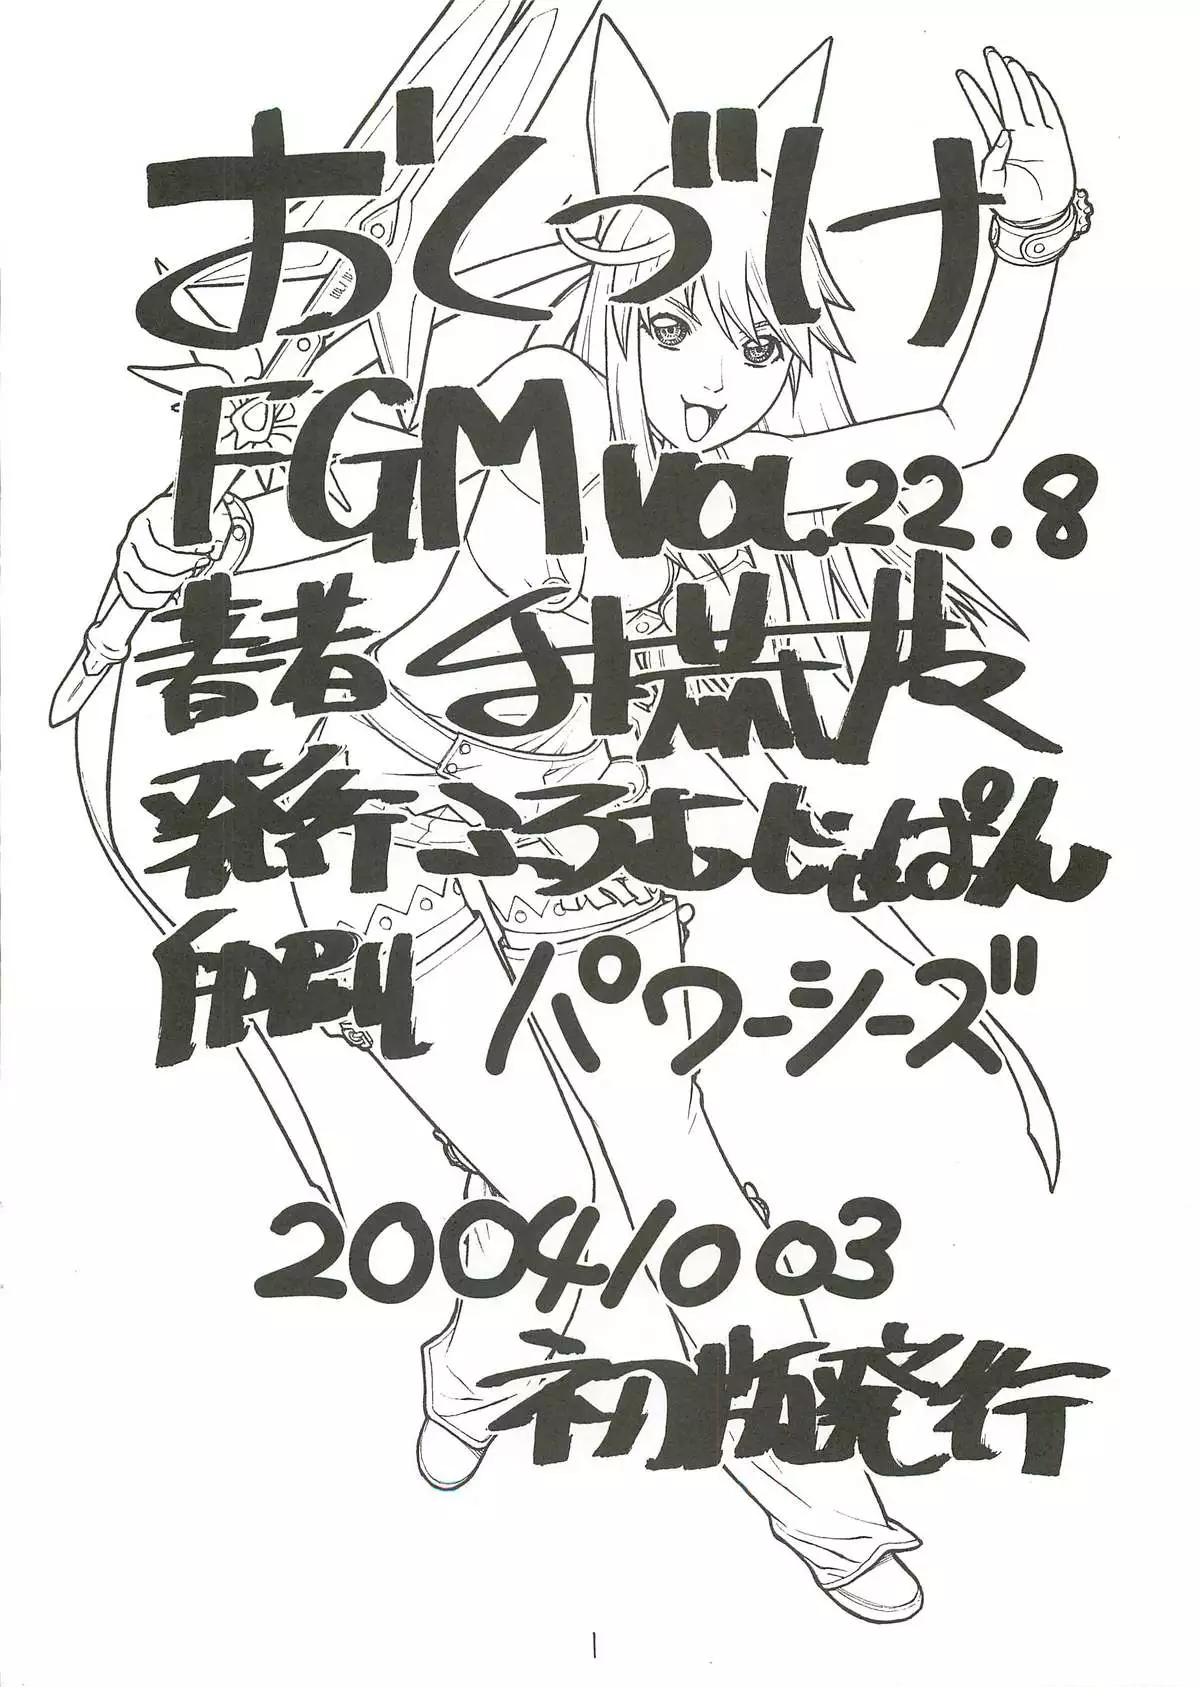 おくづけ
FGM VOL.22.8
著者 秋恭摩
発行 ふろむじゃぱん
印刷 パワーシーズ
2004/10 03
初版発行
1